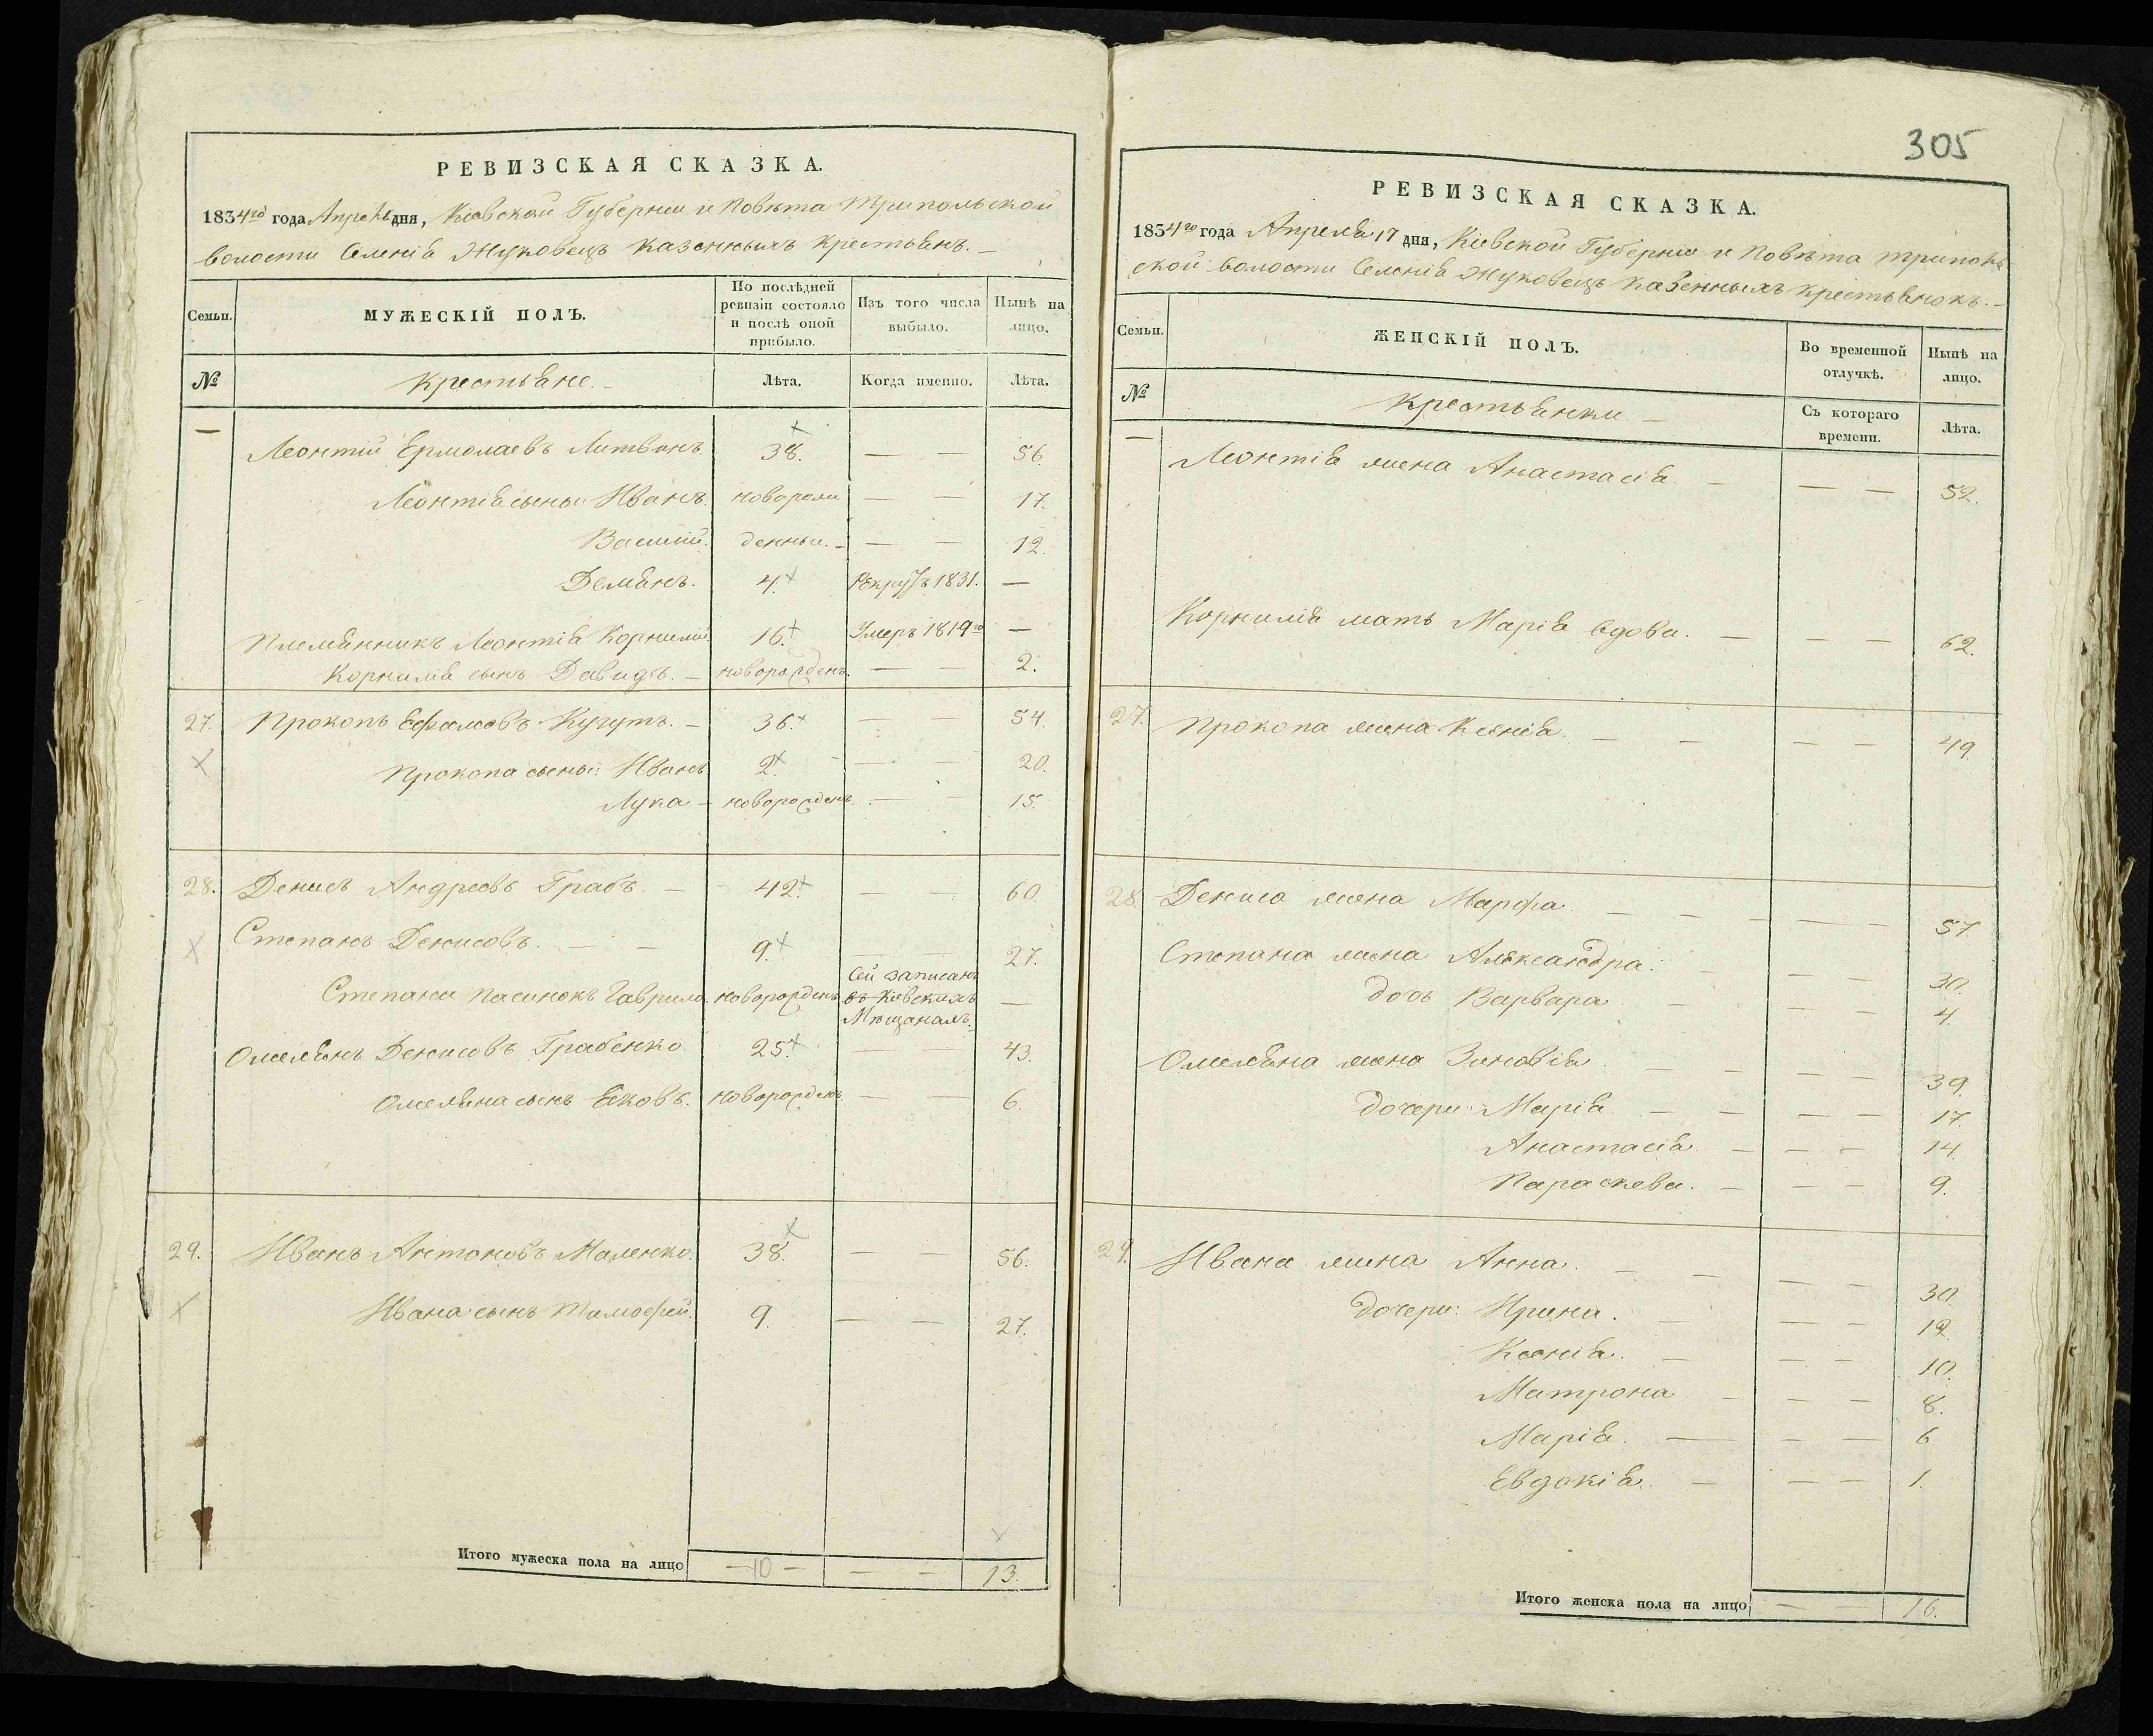 РЕВИЗСКАЯ СКАЗКА.
1834го года Апреля дня, Кіевской Губерніи и Повѣта Трипольской
волости Селенія Жуковецъ Казенныхъ Крестьянъ. —
Семьи. МУЖЕСКІЙ ПОЛЪ. По послѣдней ревизіи состояло и послѣ оной прибыло. Изъ того числа выбыло. Нынѣ на лицо.
№ Крестьяне. — Лѣта. Когда именно. Лѣта.
— Леонтій Ермолаевъ Литвинъ. 38. — — 56.
Леонтія сыны: Иванъ. новорож — — 17.
Василій. денныи. — — — 12.
Демянъ. 4. Рекрутъ 1831. —
Племянникъ Леонтія Корнилій 16. Умеръ 1819го —
Корнилія сынъ Давидъ. — новорожденъ. — — 2.
27. Прокопъ Ефимовъ Кугутъ. — 36. — 54.
Прокопа сыны: Иванъ 2. — — 20.
Лука — новорожденъ — — 15.
28. Денисъ Андреевъ Грабъ. — 42. — — 60.
Степанъ Денисовъ. — — 9. — — 27.
Степана пасинокъ Гаврило. новорожденъ Сей записанъ въ Кіевскихъ Мѣщанахъ. —
Омелянъ Денисовъ Грабенко. 25. — — 43.
Омеляна сынъ Яковъ. новорожденъ — — 6.
29. Иванъ Антоновъ Маленко. 38. — — 56.
Ивана сынъ Тимофей. 9. — — 27.
Итого мужеска пола на лицо — 10 — — — 13.
305
РЕВИЗСКАЯ СКАЗКА.
1834го года Апреля 17 дня, Кіевской Губерніи и Повѣта Триполь
ской волости Селенія Жуковецъ Казенныхъ крестьянокъ. —
Семьи. ЖЕНСКІЙ ПОЛЪ. Во временной отлучкѣ. Нынѣ на лицо.
№ Крестьянки — Съ котораго времени. Лѣта.
— Леонтія жена Анастасія. — — — 52.
Корнилія мать Марія вдова. — — — 62.
27. Прокопа жена Ксенія. — — — — 49.
28. Дениса жена Марфа. — — — — — 57.
Степана жена Александра. — — — 30.
дочь Варвара — — — 4.
Омеляна жена Зиновія. — — — — 39.
дочери: Марія — — — — 17.
Анастасія. — — — 14.
Параскева. — — — 9.
29. Ивана жена Анна. — — — — 30.
дочери: Ирина. — — — 12.
Ксенія. — — — 10.
Матрона — — — 8.
Марія. — — — 6
Евдокія. — — — 1.
Итого женска пола на лицо — — 16.